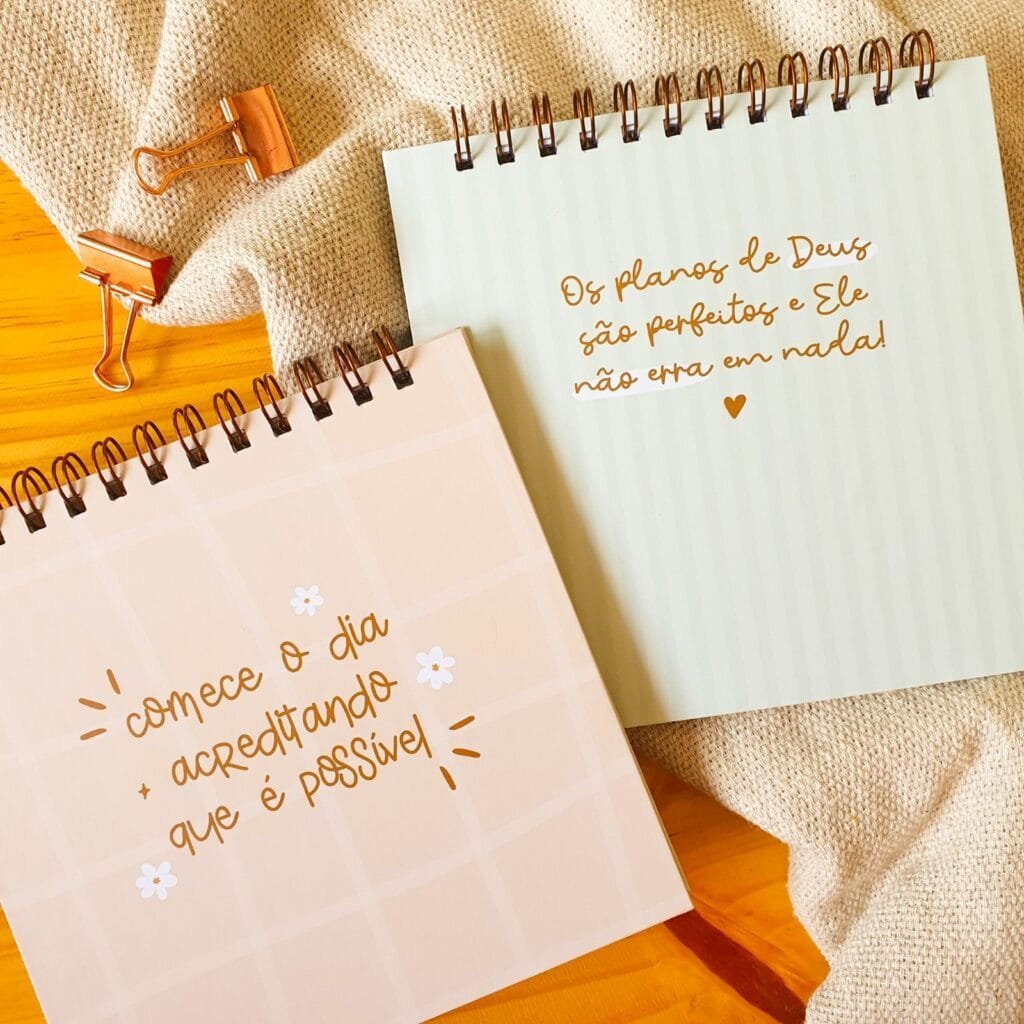 Os planos de Deus
são perfeitos e Ele
não erra em nada!
comece o dia
acreditando
que é possível